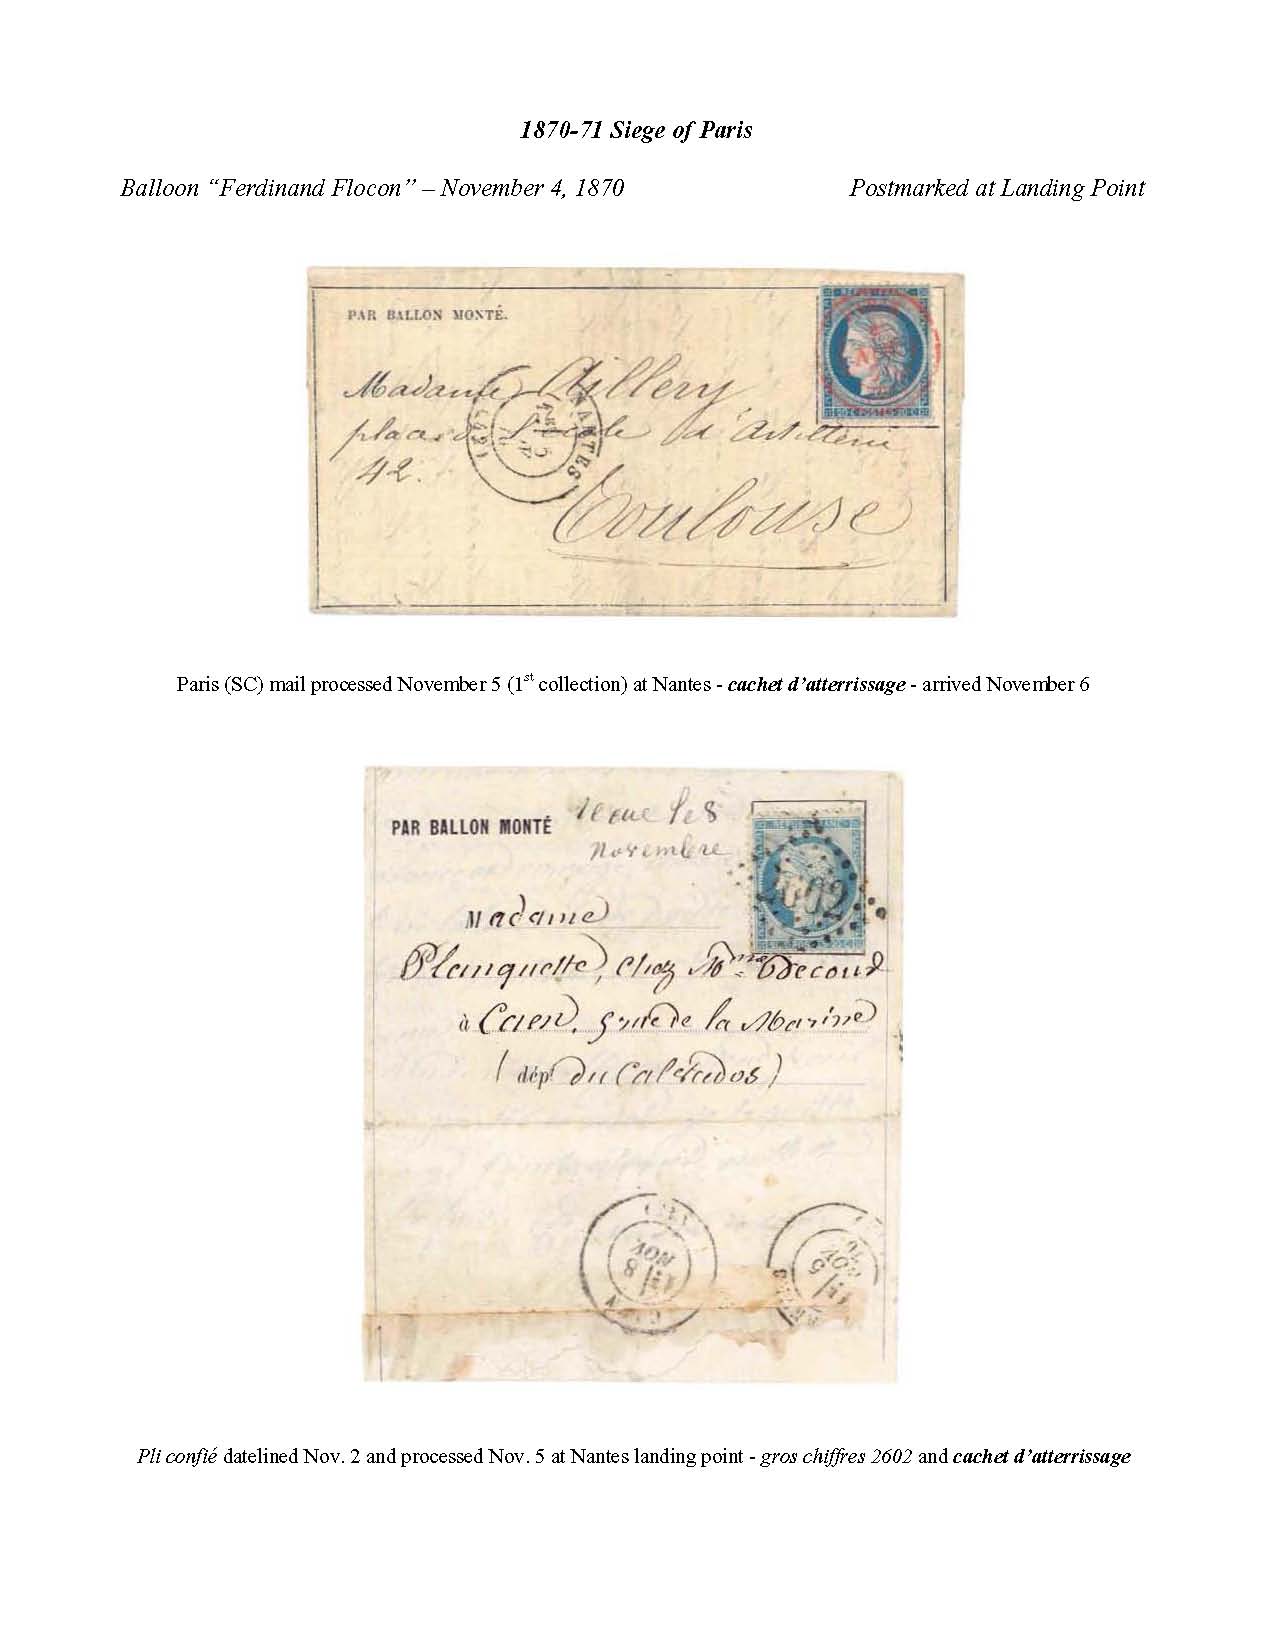 1870-71 Siege of Paris
Balloon “Ferdinand Flocon” – November 4, 1870 Postmarked at Landing Point
REPUB FRANC
PAR BALLON MONTÉ.
20 C POSTES 20 C
Madame Aillery
place de l'école d'Artillerie
42.
NANTES
Toulouse
Paris (SC) mail processed November 5 (1st collection) at Nantes - cachet d’atterrissage - arrived November 6
PAR BALLON MONTÉ
le 8
novembre
REPUB FRANC
2602
Madame
Planquette, chez Mme Decoud
à Caen, 9 rue de la Marine
(dépt du Calvados)
NOV
8
NOV
5
Pli confié datelined Nov. 2 and processed Nov. 5 at Nantes landing point - gros chiffres 2602 and cachet d’atterrissage